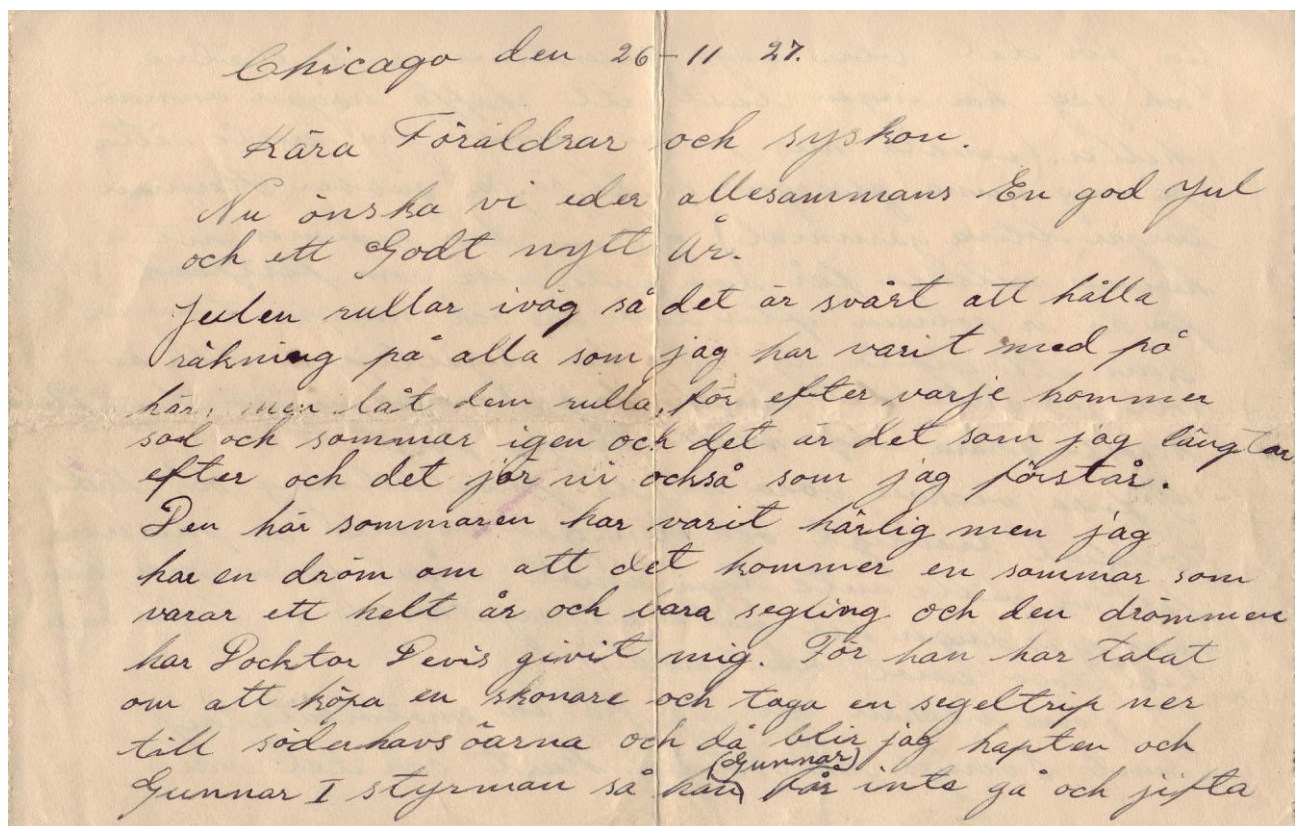 Chicago den 26-11 27.
Kära Föräldrar och syskon.
Nu önska vi eder allesammans En god Jul
och ett Godt nytt år.
Julen rullar iväg så det är svårt att hålla
räkning på alla som jag har varit med på
här, men låt dem rulla, för efter varje kommer
sol och sommar igen och det är det som jag längtar
efter och det jör ni också som jag förstår.
Den här sommaren har varit härlig men jag
har en dröm om att det kommer en sommar som
varar ett helt år och bara segling och den drömmen
har Docktor Devis givit mig. För han har talat
om att köpa en skonare och taga en segeltrip ner
till söderhavsöarna och då blir jag kapten och
(Gunnar)
Gunnar I styrman så han får inte gå och jifta